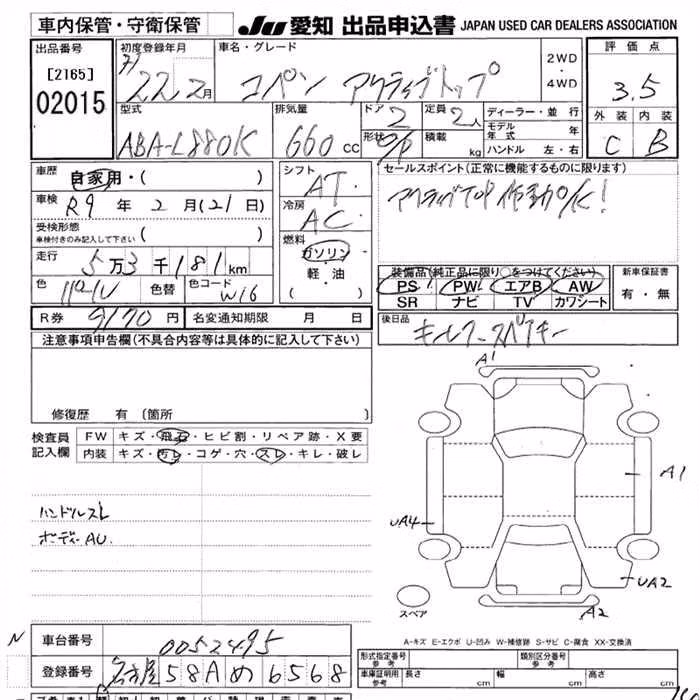 車内保管・守衛保管 JU 愛知 出品申込書 JAPAN USED CAR DEALERS ASSOCIATION
出品番号 初度登録年月 車名・グレード 2WD・4WD 評価点
[2165] 22 2月 コペン アクティブトップ 3.5
02015
型式 排気量 ドア 定員 ディーラー・並行 外装 内装
ABA-L880K 660cc 2 2人 モデル年式 年 C B
形状 積載 kg ハンドル 左・右
車歴 自家用・( ) シフト AT セールスポイント(正常に機能するものに限ります)
車検 R9年2月(21日) 冷房 AC アクティブTOP作動OK!
受検形態 ( )
車検付きのみ記入して下さい
燃料 ガソリン・軽油 ( )
走行 5万3千181km 装備品(純正品に限り○をつけてください) 新車保証書
色 色替 色コード W16 PS PW エアB AW 有・無
SR ナビ TV カワシート
R券 9170円 名変通知期限 月 日 後日品 キーレスー スペアキー
注意事項申告欄(不具合内容等は具体的に記入して下さい)
修復歴 有 〔箇所
検査員記入欄 FW キズ・飛石・ヒビ割・リペア跡・X要
内装 キズ・汚レ・コゲ・穴・スレ・キレ・破レ
ハンドルスレ
ボディーAU
A1
A1
UA4
UA2
A2
スペア
N 車台番号 0052495
A-キズ E-エクボ U-凹み W-補修跡 S-サビ C-腐食 XX-交換済
登録番号 名古屋 58A め 6568
形式指定番号 参考 類別区分番号 参考
車庫証明用 参考 長さ cm 幅 cm 高さ cm